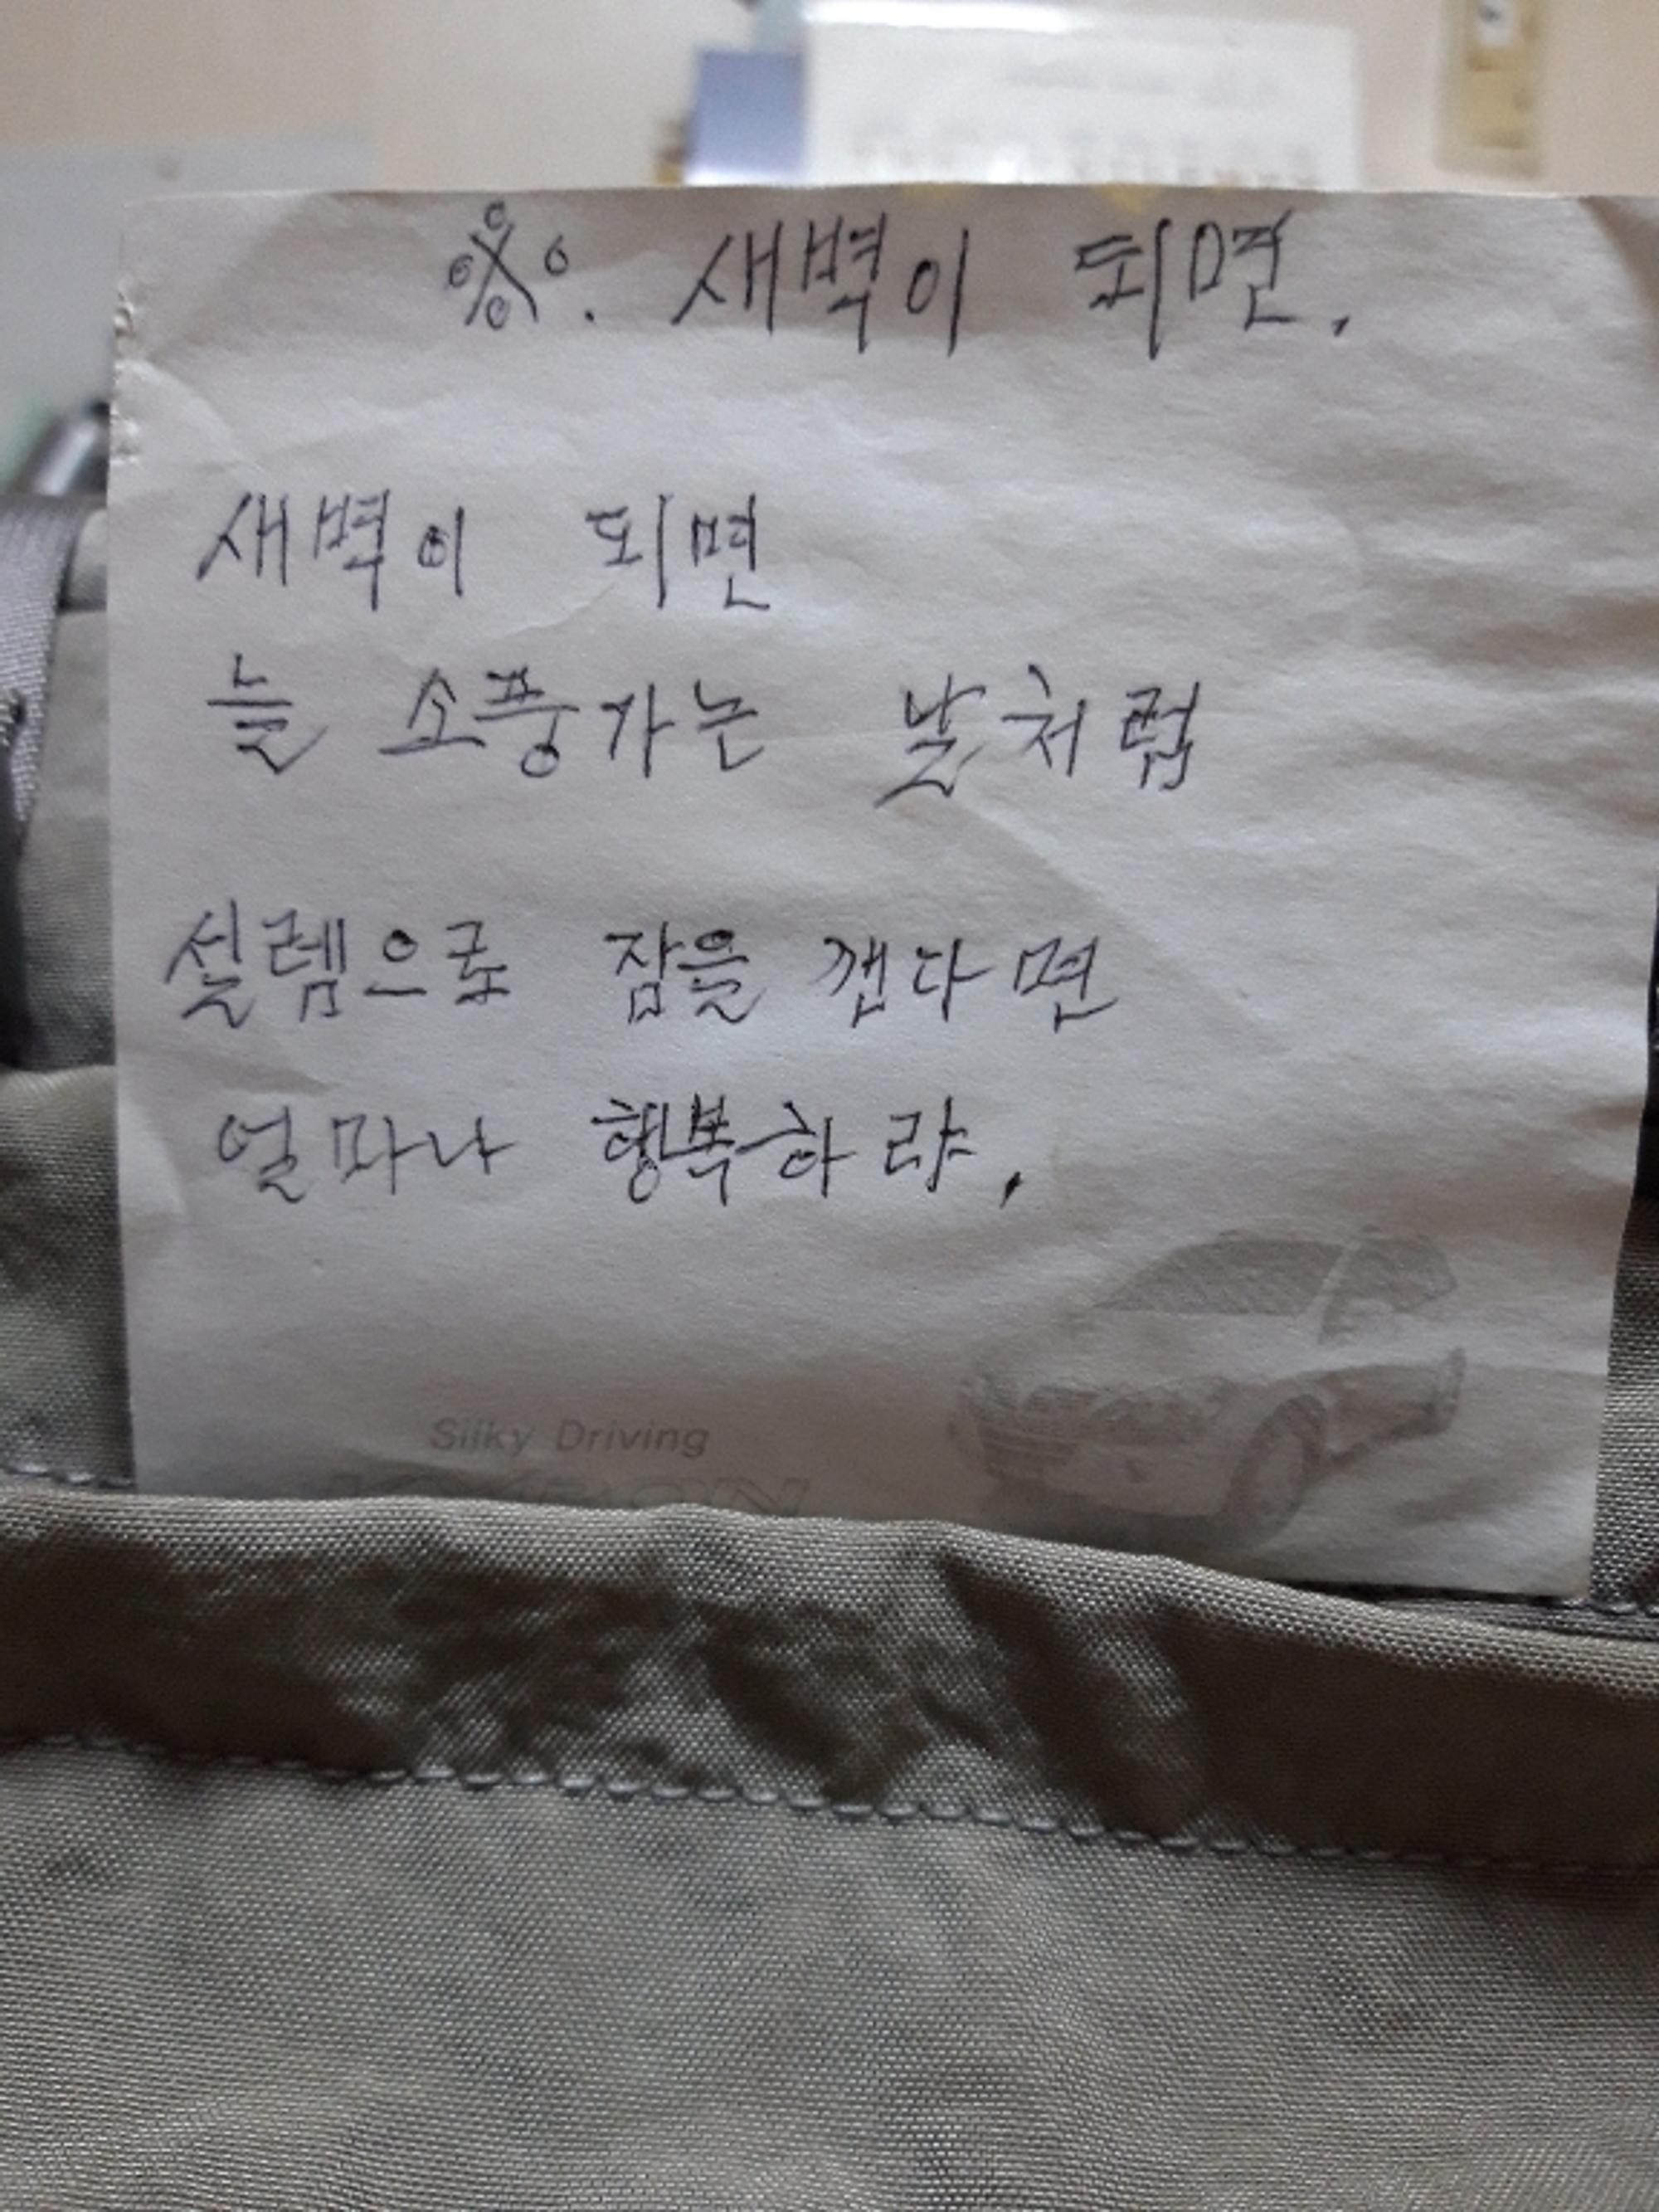 ※. 새벽이 되면.
새벽이 되면
늘 소풍가는 날처럼
설렘으로 잠을 깬다면
얼마나 행복하랴.
Silky Driving